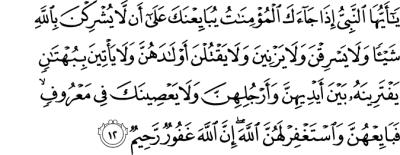 يَٰٓأَيُّهَا ٱلنَّبِيُّ إِذَا جَآءَكَ ٱلْمُؤْمِنَٰتُ يُبَايِعْنَكَ عَلَىٰٓ أَن لَّا يُشْرِكْنَ بِٱللَّهِ
شَيْـًٔا وَلَا يَسْرِقْنَ وَلَا يَزْنِينَ وَلَا يَقْتُلْنَ أَوْلَٰدَهُنَّ وَلَا يَأْتِينَ بِبُهْتَٰنٍ
يَفْتَرِينَهُۥ بَيْنَ أَيْدِيهِنَّ وَأَرْجُلِهِنَّ وَلَا يَعْصِينَكَ فِى مَعْرُوفٍ ۙ
فَبَايِعْهُنَّ وَٱسْتَغْفِرْ لَهُنَّ ٱللَّهَ ۖ إِنَّ ٱللَّهَ غَفُورٌ رَّحِيمٌ ١٢